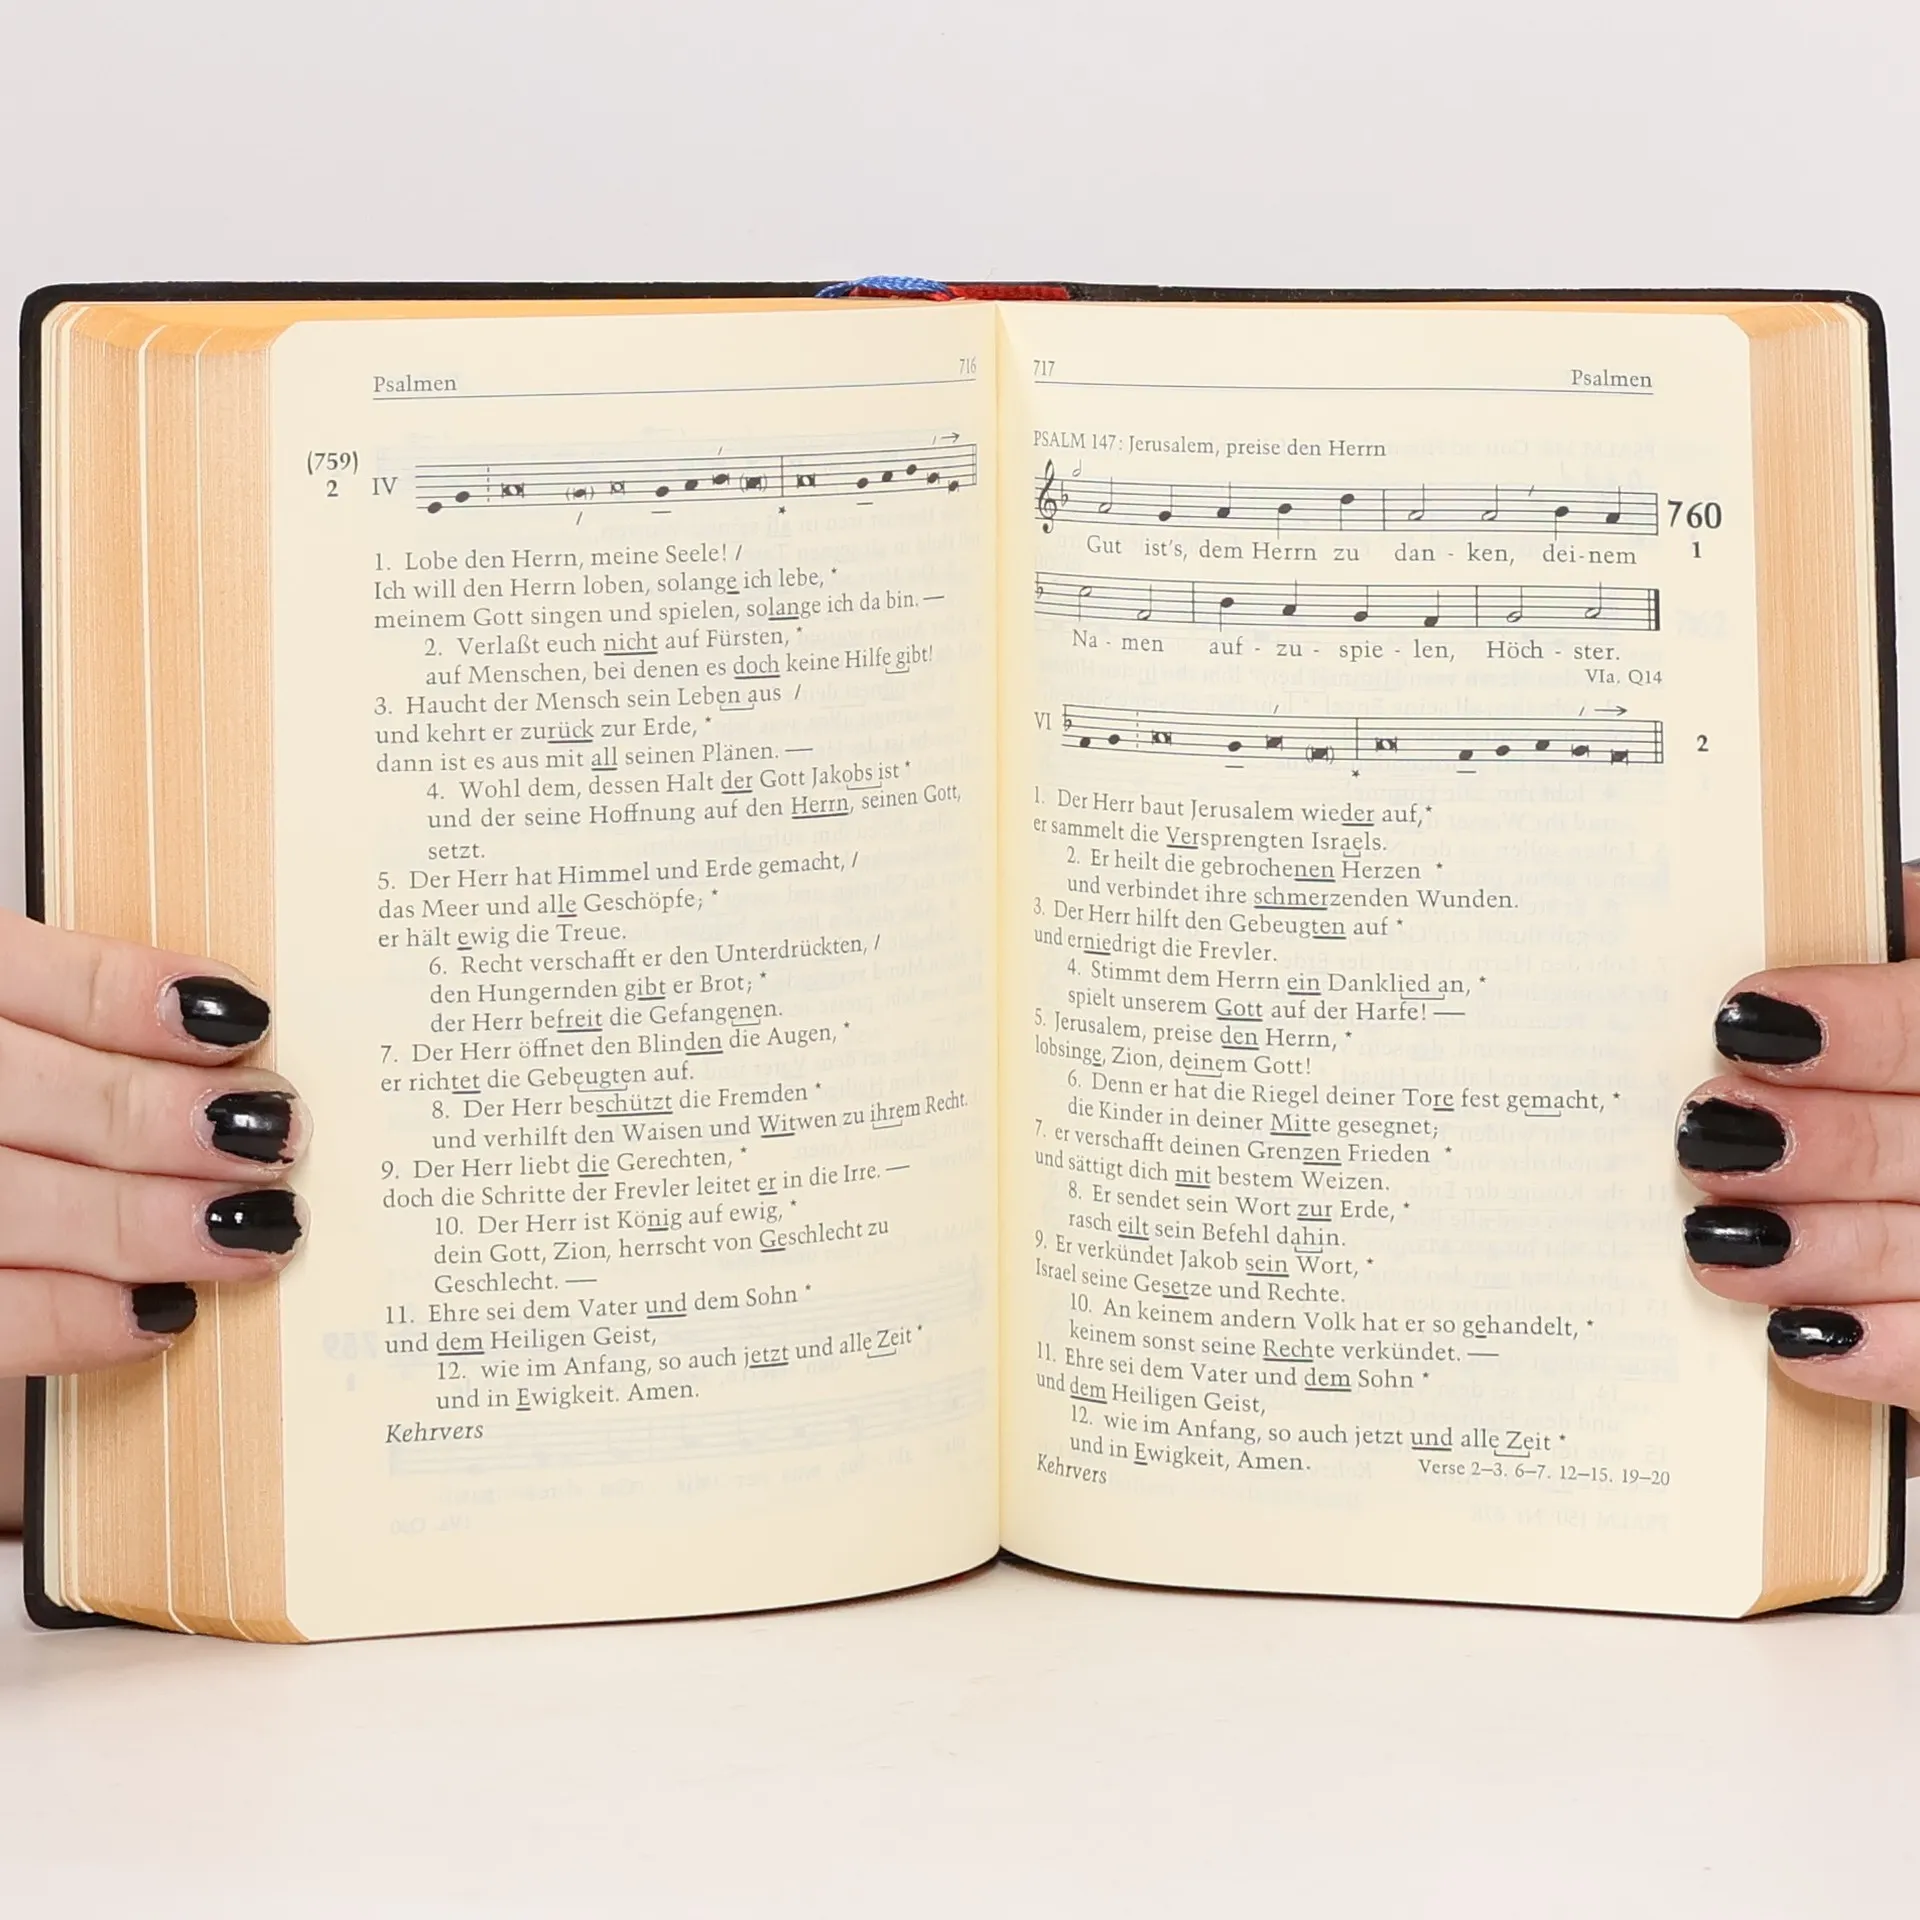 Psalmen 716
(759)
2 IV
1. Lobe den Herrn, meine Seele! /
Ich will den Herrn loben, solange ich lebe, *
meinem Gott singen und spielen, solange ich da bin. —
2. Verlaßt euch nicht auf Fürsten, *
auf Menschen, bei denen es doch keine Hilfe gibt!
3. Haucht der Mensch sein Leben aus /
und kehrt er zurück zur Erde, *
dann ist es aus mit all seinen Plänen. —
4. Wohl dem, dessen Halt der Gott Jakobs ist *
und der seine Hoffnung auf den Herrn, seinen Gott,
setzt.
5. Der Herr hat Himmel und Erde gemacht, /
das Meer und alle Geschöpfe; *
er hält ewig die Treue.
6. Recht verschafft er den Unterdrückten, /
den Hungernden gibt er Brot; *
der Herr befreit die Gefangenen.
7. Der Herr öffnet den Blinden die Augen, *
er richtet die Gebeugten auf.
8. Der Herr beschützt die Fremden *
und verhilft den Waisen und Witwen zu ihrem Recht.
9. Der Herr liebt die Gerechten, *
doch die Schritte der Frevler leitet er in die Irre. —
10. Der Herr ist König auf ewig, *
dein Gott, Zion, herrscht von Geschlecht zu
Geschlecht. —
11. Ehre sei dem Vater und dem Sohn *
und dem Heiligen Geist,
12. wie im Anfang, so auch jetzt und alle Zeit *
und in Ewigkeit. Amen.
Kehrvers
717 Psalmen
PSALM 147: Jerusalem, preise den Herrn
760
1
Gut ist's, dem Herrn zu dan - ken, dei-nem
Na - men auf - zu - spie - len, Höch - ster.
VIa. Q14
VI 2
1. Der Herr baut Jerusalem wieder auf, *
er sammelt die Versprengten Israels.
2. Er heilt die gebrochenen Herzen *
und verbindet ihre schmerzenden Wunden.
3. Der Herr hilft den Gebeugten auf *
und erniedrigt die Frevler.
4. Stimmt dem Herrn ein Danklied an, *
spielt unserem Gott auf der Harfe! —
5. Jerusalem, preise den Herrn, *
lobsinge, Zion, deinem Gott!
6. Denn er hat die Riegel deiner Tore fest gemacht, *
die Kinder in deiner Mitte gesegnet;
7. er verschafft deinen Grenzen Frieden *
und sättigt dich mit bestem Weizen.
8. Er sendet sein Wort zur Erde, *
rasch eilt sein Befehl dahin.
9. Er verkündet Jakob sein Wort, *
Israel seine Gesetze und Rechte.
10. An keinem andern Volk hat er so gehandelt, *
keinem sonst seine Rechte verkündet. —
11. Ehre sei dem Vater und dem Sohn *
und dem Heiligen Geist,
12. wie im Anfang, so auch jetzt und alle Zeit *
und in Ewigkeit, Amen.
Verse 2–3. 6–7. 12–15. 19–20
Kehrvers